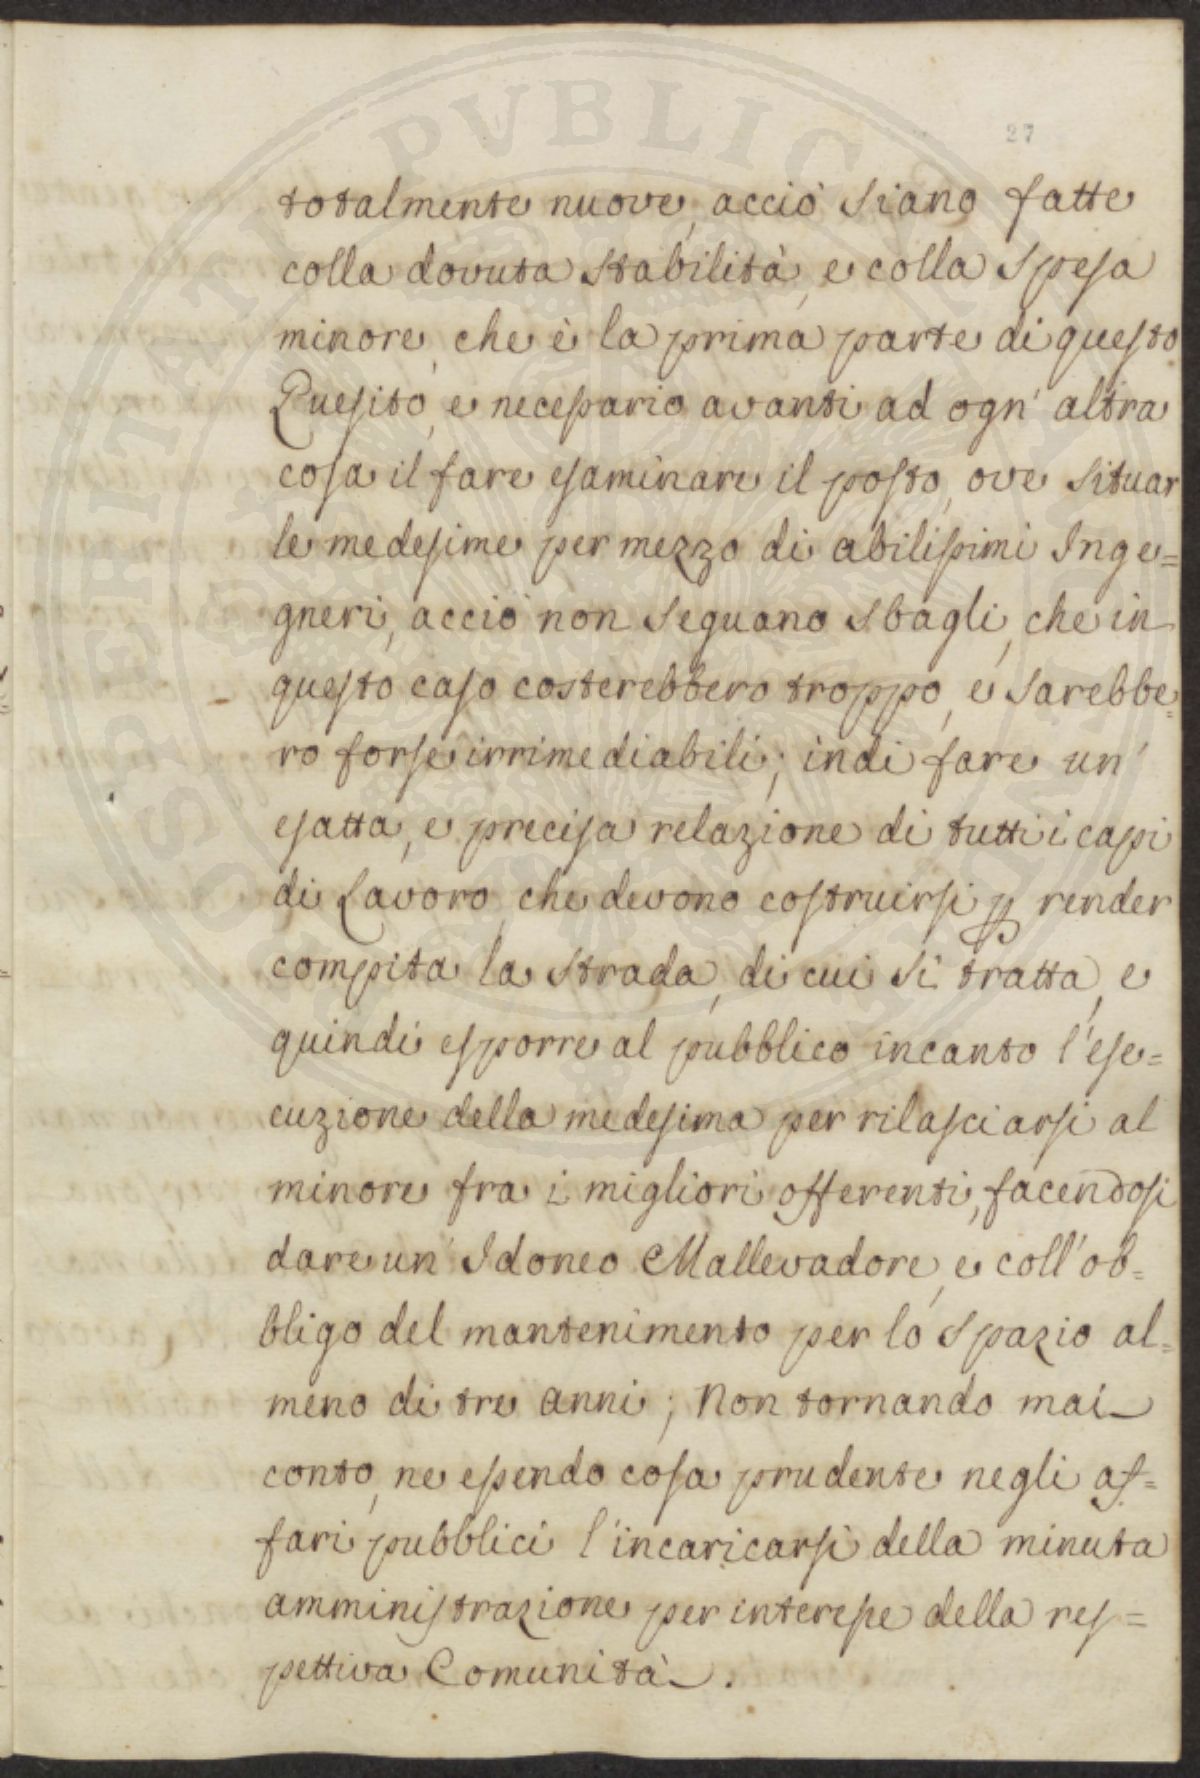 27
totalmente nuove, acciò siano fatte
colla dovuta stabilità, e colla spesa
minore, che è la prima parte di questo
Quesito, e necessario avanti ad ogn' altra
cosa il fare esaminare il posto, ove situar
le medesime per mezzo di abilissimi Inge=
gneri, acciò non seguano sbagli, che in
questo caso costerebbero troppo, e sarebbe=
ro forse irrimediabili; indi fare un'
esatta, e precisa relazione di tutti i capi
di Lavoro, che devono costruirsi p render
compita la strada, di cui si tratta, e
quindi esporre al pubblico incanto l'ese=
cuzione della medesima per rilasciarsi al
minore fra i migliori offerenti, facendosi
dare un' Idoneo Mallevadore, e coll'ob=
bligo del mantenimento per lo spazio al=
meno di tre anni; Non tornando mai
conto, ne essendo cosa prudente negli af=
fari pubblici l'incaricarsi della minuta
amministrazione per interesse della res=
pettiva Comunità.